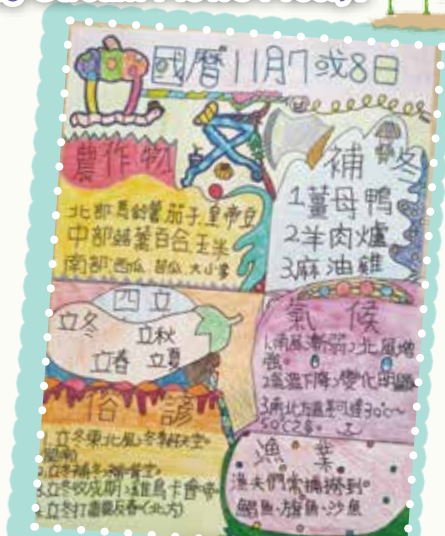 國曆11月7或8日
農作物
北部馬鈴薯茄子.皇帝豆
中部 百合.玉米
南部:西瓜.苦瓜.大小
補冬
1.薑母鴨
2.羊肉爐
3.麻油雞
四立
立冬
立秋
立春 立夏
氣候
1.南風漸弱,北風增
強。
2.氣溫下降,變化明顯
3.南北方溫差可達30℃~
50℃2
俗諺
1.立冬東北風,冬
2.立冬補冬,
3.立冬收成期,雞鳥卡會啼
4.立冬打雷要反春(北方)
漁業
漁夫們常捕撈到。
魚、旗魚、沙魚